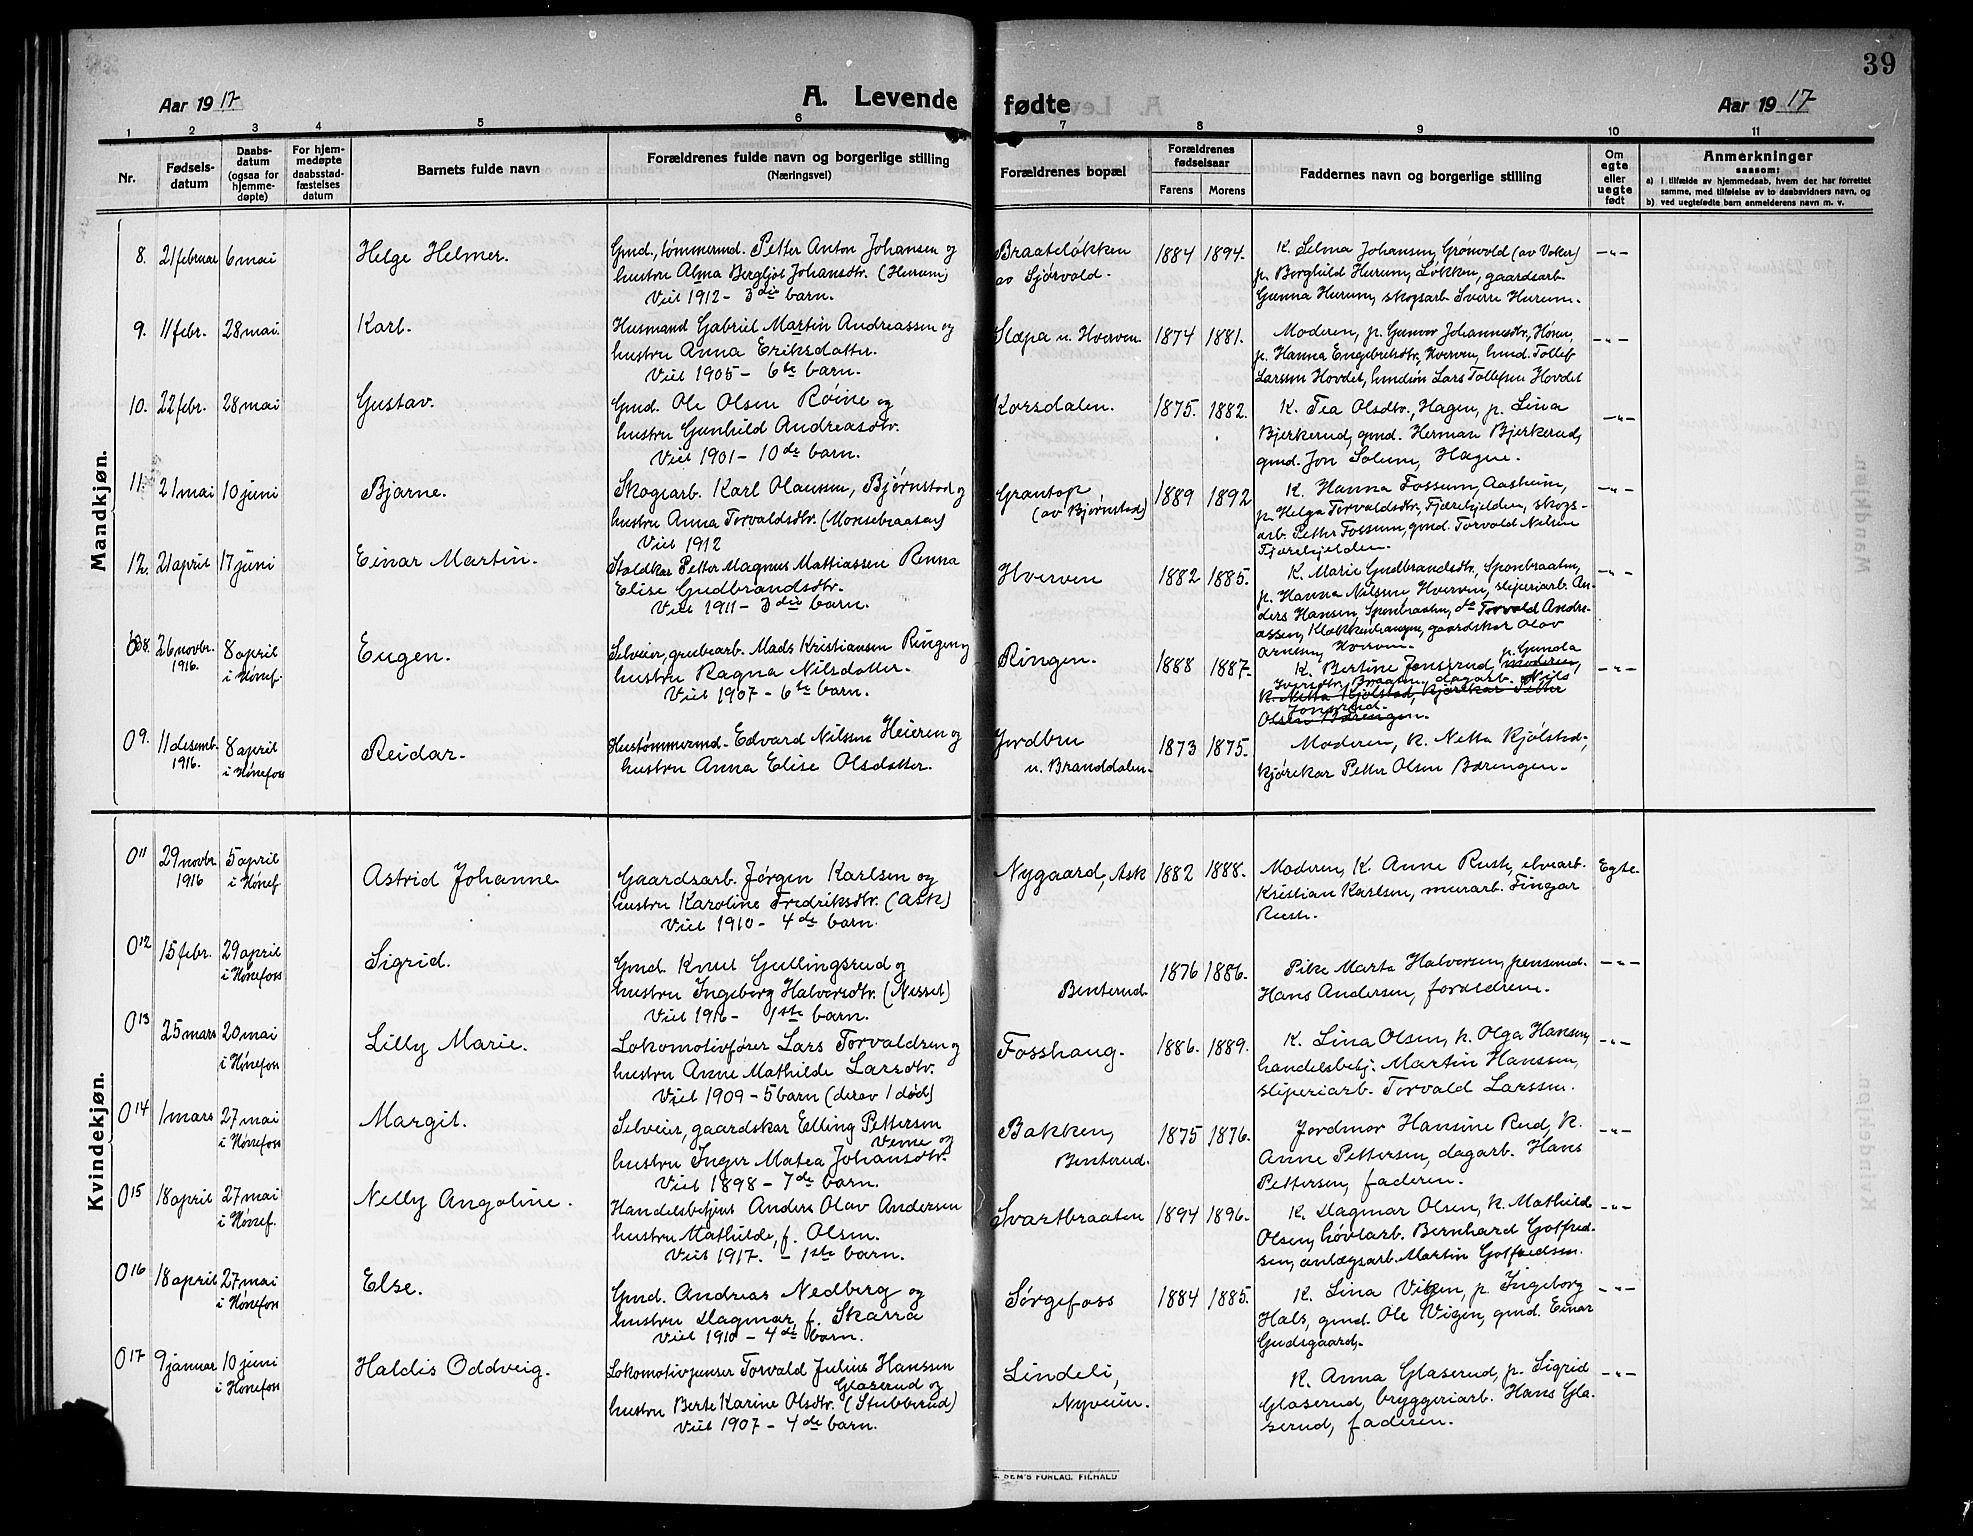 39
Aar 1917
A. Levende fødte
Aar 1917
1 2 3 4 5 6 7 8 9 10 11
Nr.
Fødsels-
datum
Daabs-
datum
(ogsaa for
hjemme-
døpte)
For hjem-
medøpte
daabsstad-
fæstelses
datum
Barnets fulde navn
Forældrenes fulde navn og borgerlige stilling
(Næringsvei)
Forældrenes bopæl
Forældrenes
fødselsaar
Farens Morens
Faddernes navn og borgerlige stilling
Om
egte
eller
uegte
født
Anmerkninger
saasom:
a) i tilfælde av hjemmedaab, hvem der har forrettet
samme, med tilføielse av to daabsvidners navn, og
b) ved uegtefødte barn anmelderens navn m. v.
Mandkjøn.
8. 21 februar 6 mai
Helge Helmer.
Gmd., tømmermd. Petter Anton Johansen og
hustru Alma Bergljot Johansdtr. (Hurum)
Viet 1912 - 3die barn.
Braateløkken
av Sjørvold.
1884 1894.
K. Selma Johansen, Grønvold (av Voker)
p. Borghild Hurum, Løkken, gaardsarb.
Gunna Hurum, skogsarb. Sverre Hurum.
-"-
9. 11 febr. 28 mai.
Karl.
Husmand Gabriel Martin Andreassen og
hustru Anna Eriksdatter.
Viet 1905 - 6te barn.
Slæpa u. Hverven
1874 1881.
Moderen, p. Gunvor Johannesdtr, Høien,
p. Hanna Engebretsdtr, Hverven, gmd. Tollef
Larssen Hovdet, gmdsøn Lars Tollefsen Hovdet
-"-
10. 22 febr. 28 mai
Gustav.
Gmd. Ole Olsen Røine og
hustru Gunhild Andreasdtr.
Viet 1901 - 10de barn.
Korsdalen.
1875. 1882.
K. Tea Olsdtr., Hagen, p. Lina
Bjerkerud, gmd. Herman Bjerkerud,
gmd. Jon Solum, Hagen.
-"-
11. 21 mai 10 juni
Bjarne.
Skogsarb. Karl Olaussen, Bjørnstad og
hustru Anna Torvaldsdtr. (Monsebraaten)
Viet 1912
Grantop
(av Bjørnstad)
1889 1892
K. Hanna Fossum, Aasheim,
p. Helga Torvaldsdtr, Fjærehjelden, skogs-
arb. Petter Fossum, gmd. Torvald Nilsen
Fjærehjelden.
-"-
12. 21 april 17 juni
Einar Martin.
Staldkar Petter Magnus Mattiassen Renna
Elise Gudbrandsdtr.
Viet 1911 - 3die barn.
Hverven
1882 1885.
K. Marie Gudbrandsdtr, Sponbraaten,
p. Hanna Nilsen Hverven, sliperiarb. An-
ders Hansen, Sponbraaten, do Torvald Andre-
assen, Klokkenhaugen, gaardskar Olav
Arnesen, Hverven.
-"-
08. 26 novbr. 1916. 8 april i Hønef.
Eugen.
Selveier, grubearb. Mads Kristiansen Ringen og
hustru Ragna Nilsdatter.
Viet 1907 - 6te barn.
Ringen.
1888 1887.
K. Bertine Jonsrud, moderen, p. Gunda
Iversdtr, Braaten, dagarb. Nils
K. Netta Kjølstad, kjørekar Petter
Jonsrud.
Olsen Bærengen.
-"-
09. 11 desemb. 1916. 8 april i Hønefoss
Reidar.
Hustømmermd. Edvard Nilssen Heieren og
hustru Anna Elise Olsdatter.
Jordbru
u. Branddalen.
1873 1875.
Moderen, K. Netta Kjølstad,
kjørekar Petter Olsen Bærengen.
Kvindekjøn.
011 29 novbr. 1916 5 april i Hønef
Astrid Johanne
Gaardsarb. Jørgen Karlsen og
hustru Karoline Fredriksdtr. (Ask)
Viet 1910 - 4de barn.
Nygaard, Ask
1882 1888.
Moderen, K. Anne Rust, elvearb.
Kristian Karlsen, murarb. Fingar
Rust.
Egte.
012 15 febr. 29 april i Hønefoss
Sigrid.
Gmd. Knut Gullingsrud og
hustru Ingeborg Halvorsdtr. (Nesset)
Viet 1916 - 1ste barn.
Benterud.
1876 1886.
Pike Marta Halvorsen, pensmd.
Hans Andersen, forældrene.
-"-
013 25 mars 20 mai i Hønefoss
Lilly Marie.
Lokomotivfører Lars Torvaldsen og
hustru Anne Mathilde Larsdtr.
Viet 1909 - 5 barn (derav 1 død)
Fosshaug.
1886. 1889.
K. Lina Olsen, k. Olga Hansen,
handelsbetj. Martin Hanssen,
sliperiarb. Torvald Larssen.
-"-
014 1 mars 27 mai i Hønefoss
Margit.
Selveier, gaardskar Elling Pettersen
Veme og
hustru Inger Matea Johansdtr.
Viet 1898 - 7de barn.
Bakken,
Benterud.
1875 1876.
Jordmor Hansine Rud, K.
Anne Pettersen, dagarb. Hans
Pettersen, faderen.
-"-
015 18 april 27 mai i Hønef.
Nelly Angoline.
Handelsbetjent Anders Olav Andersen
hustru Mathilde, f. Olsen.
Viet 1917. - 1ste barn.
Svartbraaten
1894 1896.
K. Dagmar Olsen, k. Mathilde
Olsen, høvlarb. Bernhard Gotfred-
sen, anlægsarb. Martin Gotfredsen.
-"-
016 18 april 27 mai i Hønefoss
Else.
Gmd. Andreas Nedberg og
hustru Dagmar, f. Skarra
Viet 1910 - 4de barn.
Sørgefoss
1884 1885.
K. Lina Vigen, p. Ingeborg
Hals, gmd. Ole Vigen, gmd. Einar
Gudsgaard.
-"-
017 9 januar 10 juni i Hønefoss
Haldis Oddveig.
Lokomotivpusser Torvald Julius Hanssen
Glaserud og
hustru Berte Karine Olsdtr. (Stubberud)
Viet 1907 - 4de barn.
Lindeli,
Nyveien.
K. Anna Glaserud, p. Sigrid
Glaserud, bryggeriarb. Hans Gla-
serud, faderen.
-"-
SEM'S FORLAG, F.HALD